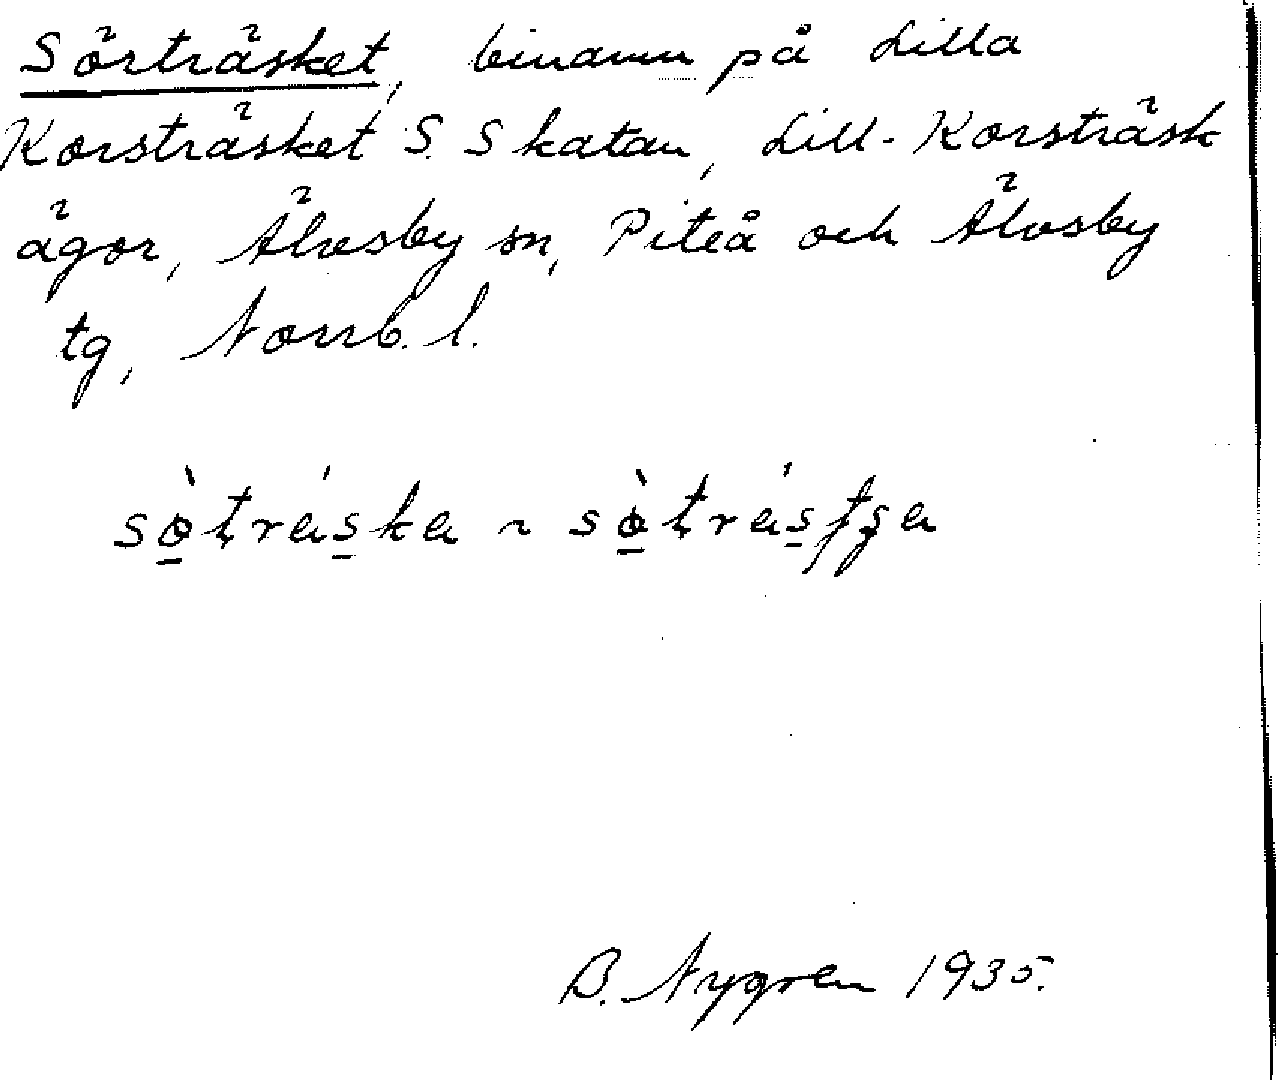 Sörträsket, binamn på Lilla
Korsträsket S. Skatan, Lill-Korsträsk
ägor, Älvsby sn, Piteå och Älvsby
tg, Norrb. l.
B. Nygren 1935.